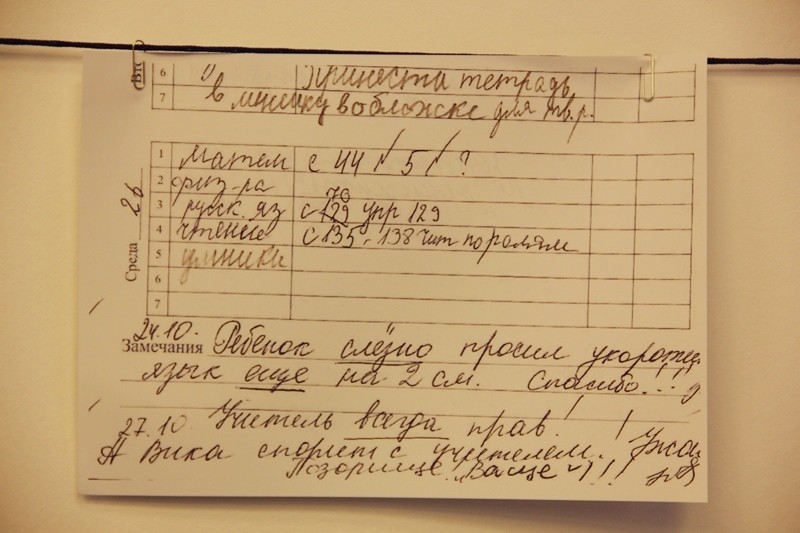 Вто
6 " Принести тетрадь
7 в мешику в обложке для тв.р.
Среда 26
1 матем с 44 № 5 № ?
2 физ-ра
76
3 русск. яз с 129 упр 129
4 чтение с 135-138 чит по ролям
5 умники
6
7
24.10.
Замечания Ребёнок слёзно просил укоротить
язык еще на 2 см. Спасибо!!!
27.10. Учитель всегда прав!
А Вика спорит с учителем. Ужас
Позорище Ваще!!!